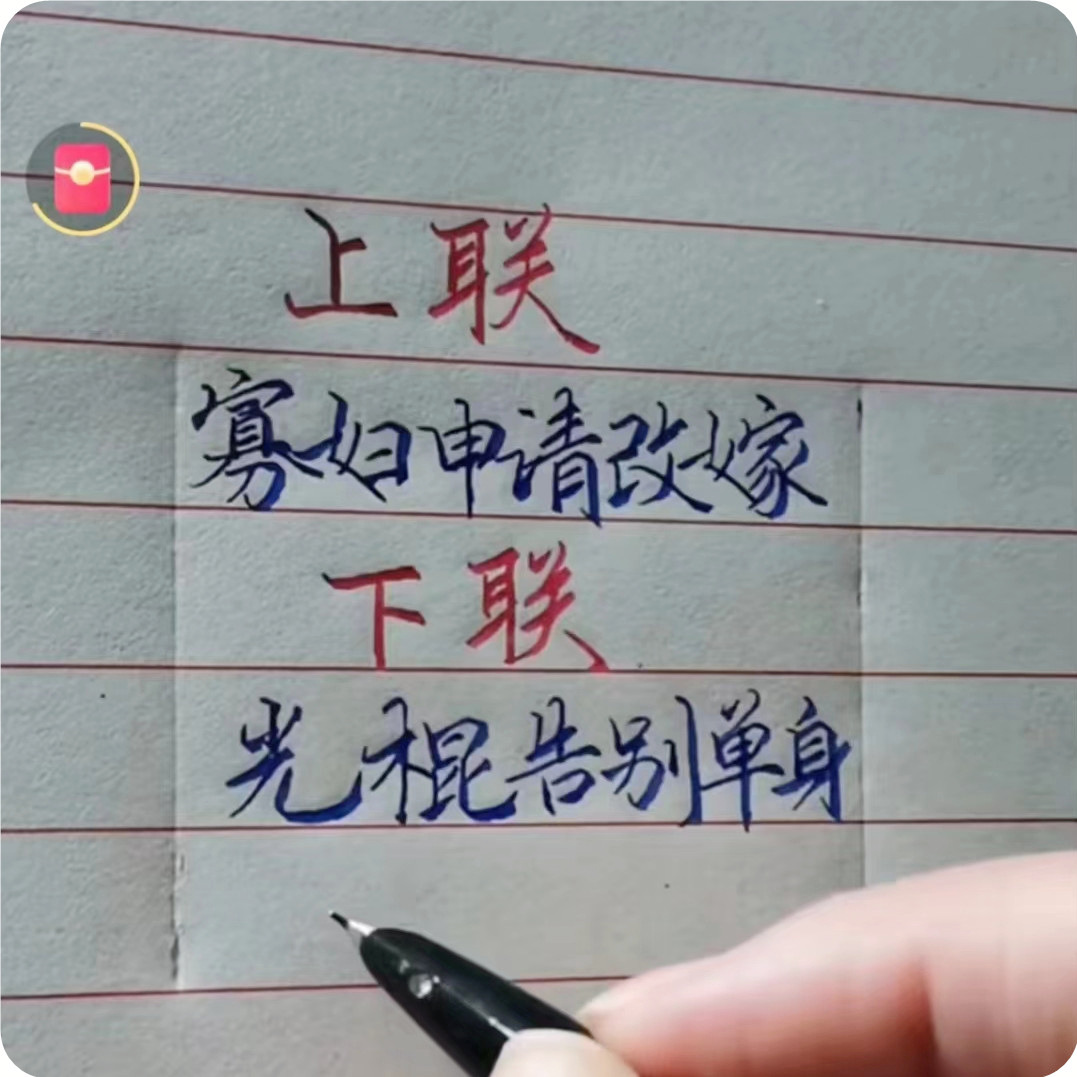 上联
寡妇申请改嫁
下联
光棍告别单身